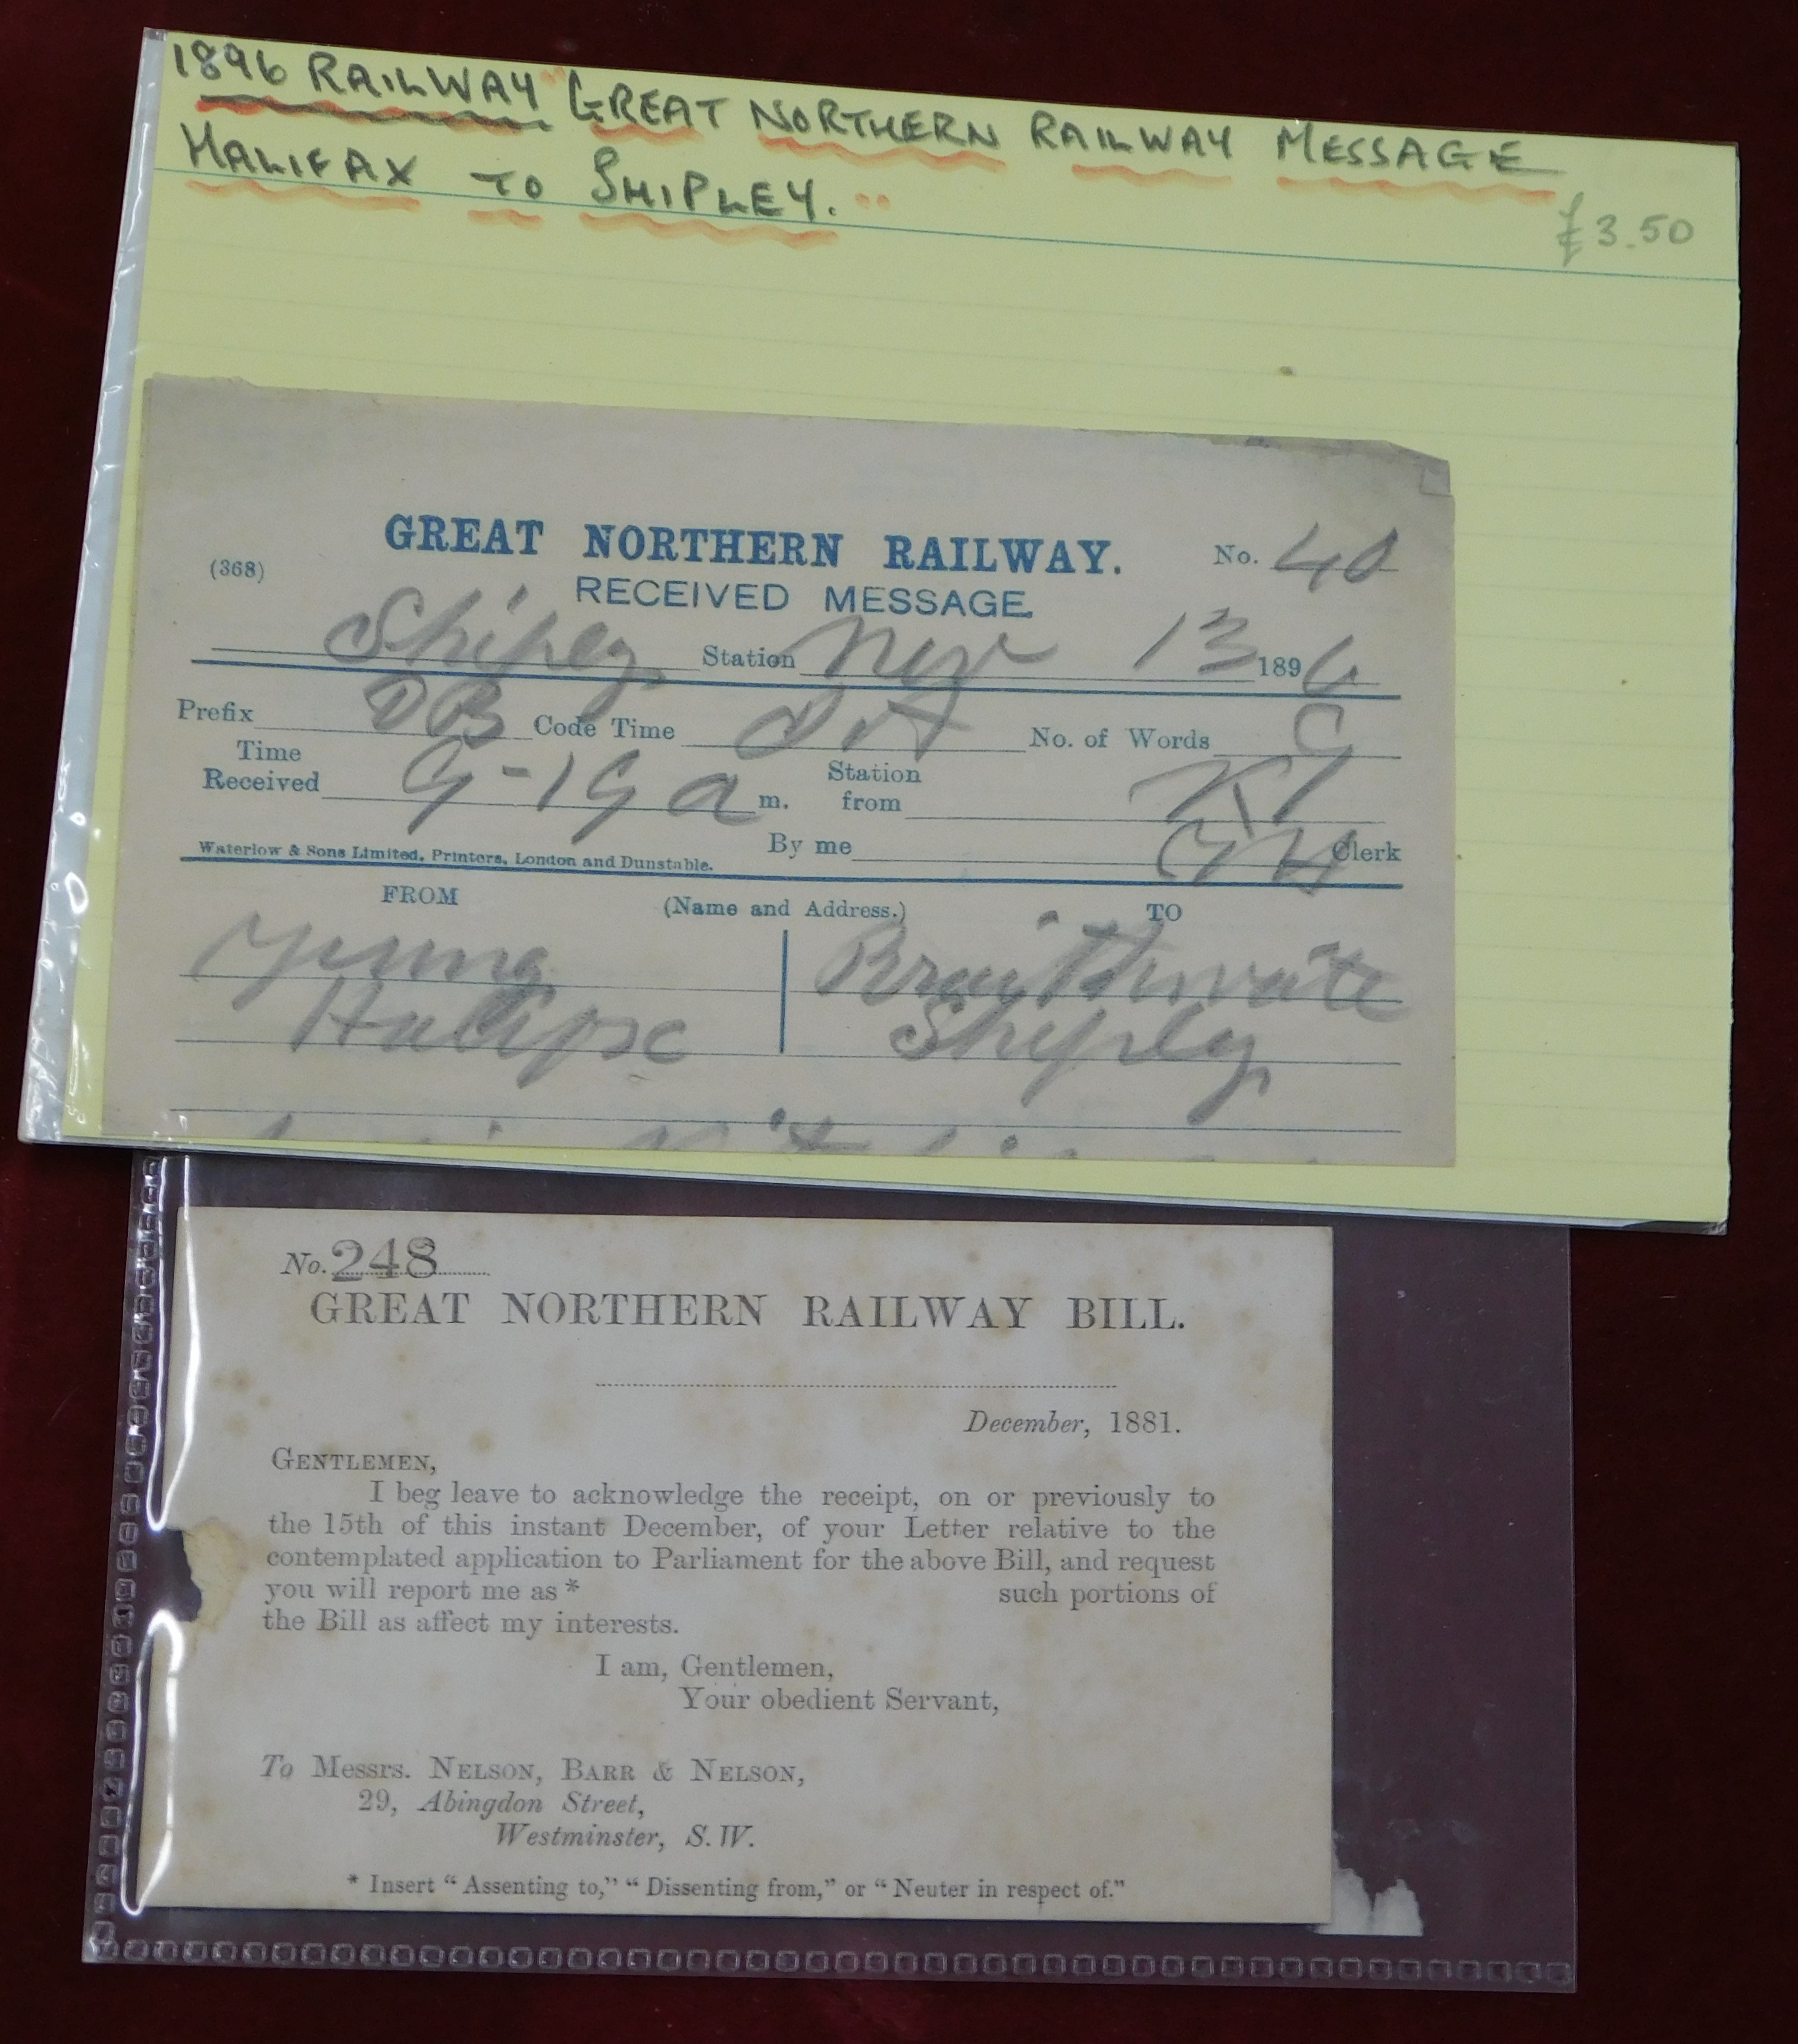 1896 RAILWAY "GREAT NORTHERN RAILWAY MESSAGE
HALIFAX TO SHIPLEY."
£3.50
GREAT NORTHERN RAILWAY. No. 40
(368)
RECEIVED MESSAGE
Shipley Station Nov 13 1896
Prefix DB Code Time No. of Words 9
Time Received 9-19 a m. Station from
By me Clerk
Waterlow & Sons Limited, Printers, London and Dunstable.
FROM (Name and Address.) TO
Young Braithwaite
Halifax Shipley
No. 248
GREAT NORTHERN RAILWAY BILL.
December, 1881.
GENTLEMEN,
I beg leave to acknowledge the receipt, on or previously to
the 15th of this instant December, of your Letter relative to the
contemplated application to Parliament for the above Bill, and request
you will report me as * such portions of
the Bill as affect my interests.
I am, Gentlemen,
Your obedient Servant,
To Messrs. NELSON, BARR & NELSON,
29, Abingdon Street,
Westminster, S.W.
* Insert "Assenting to," "Dissenting from," or "Neuter in respect of."